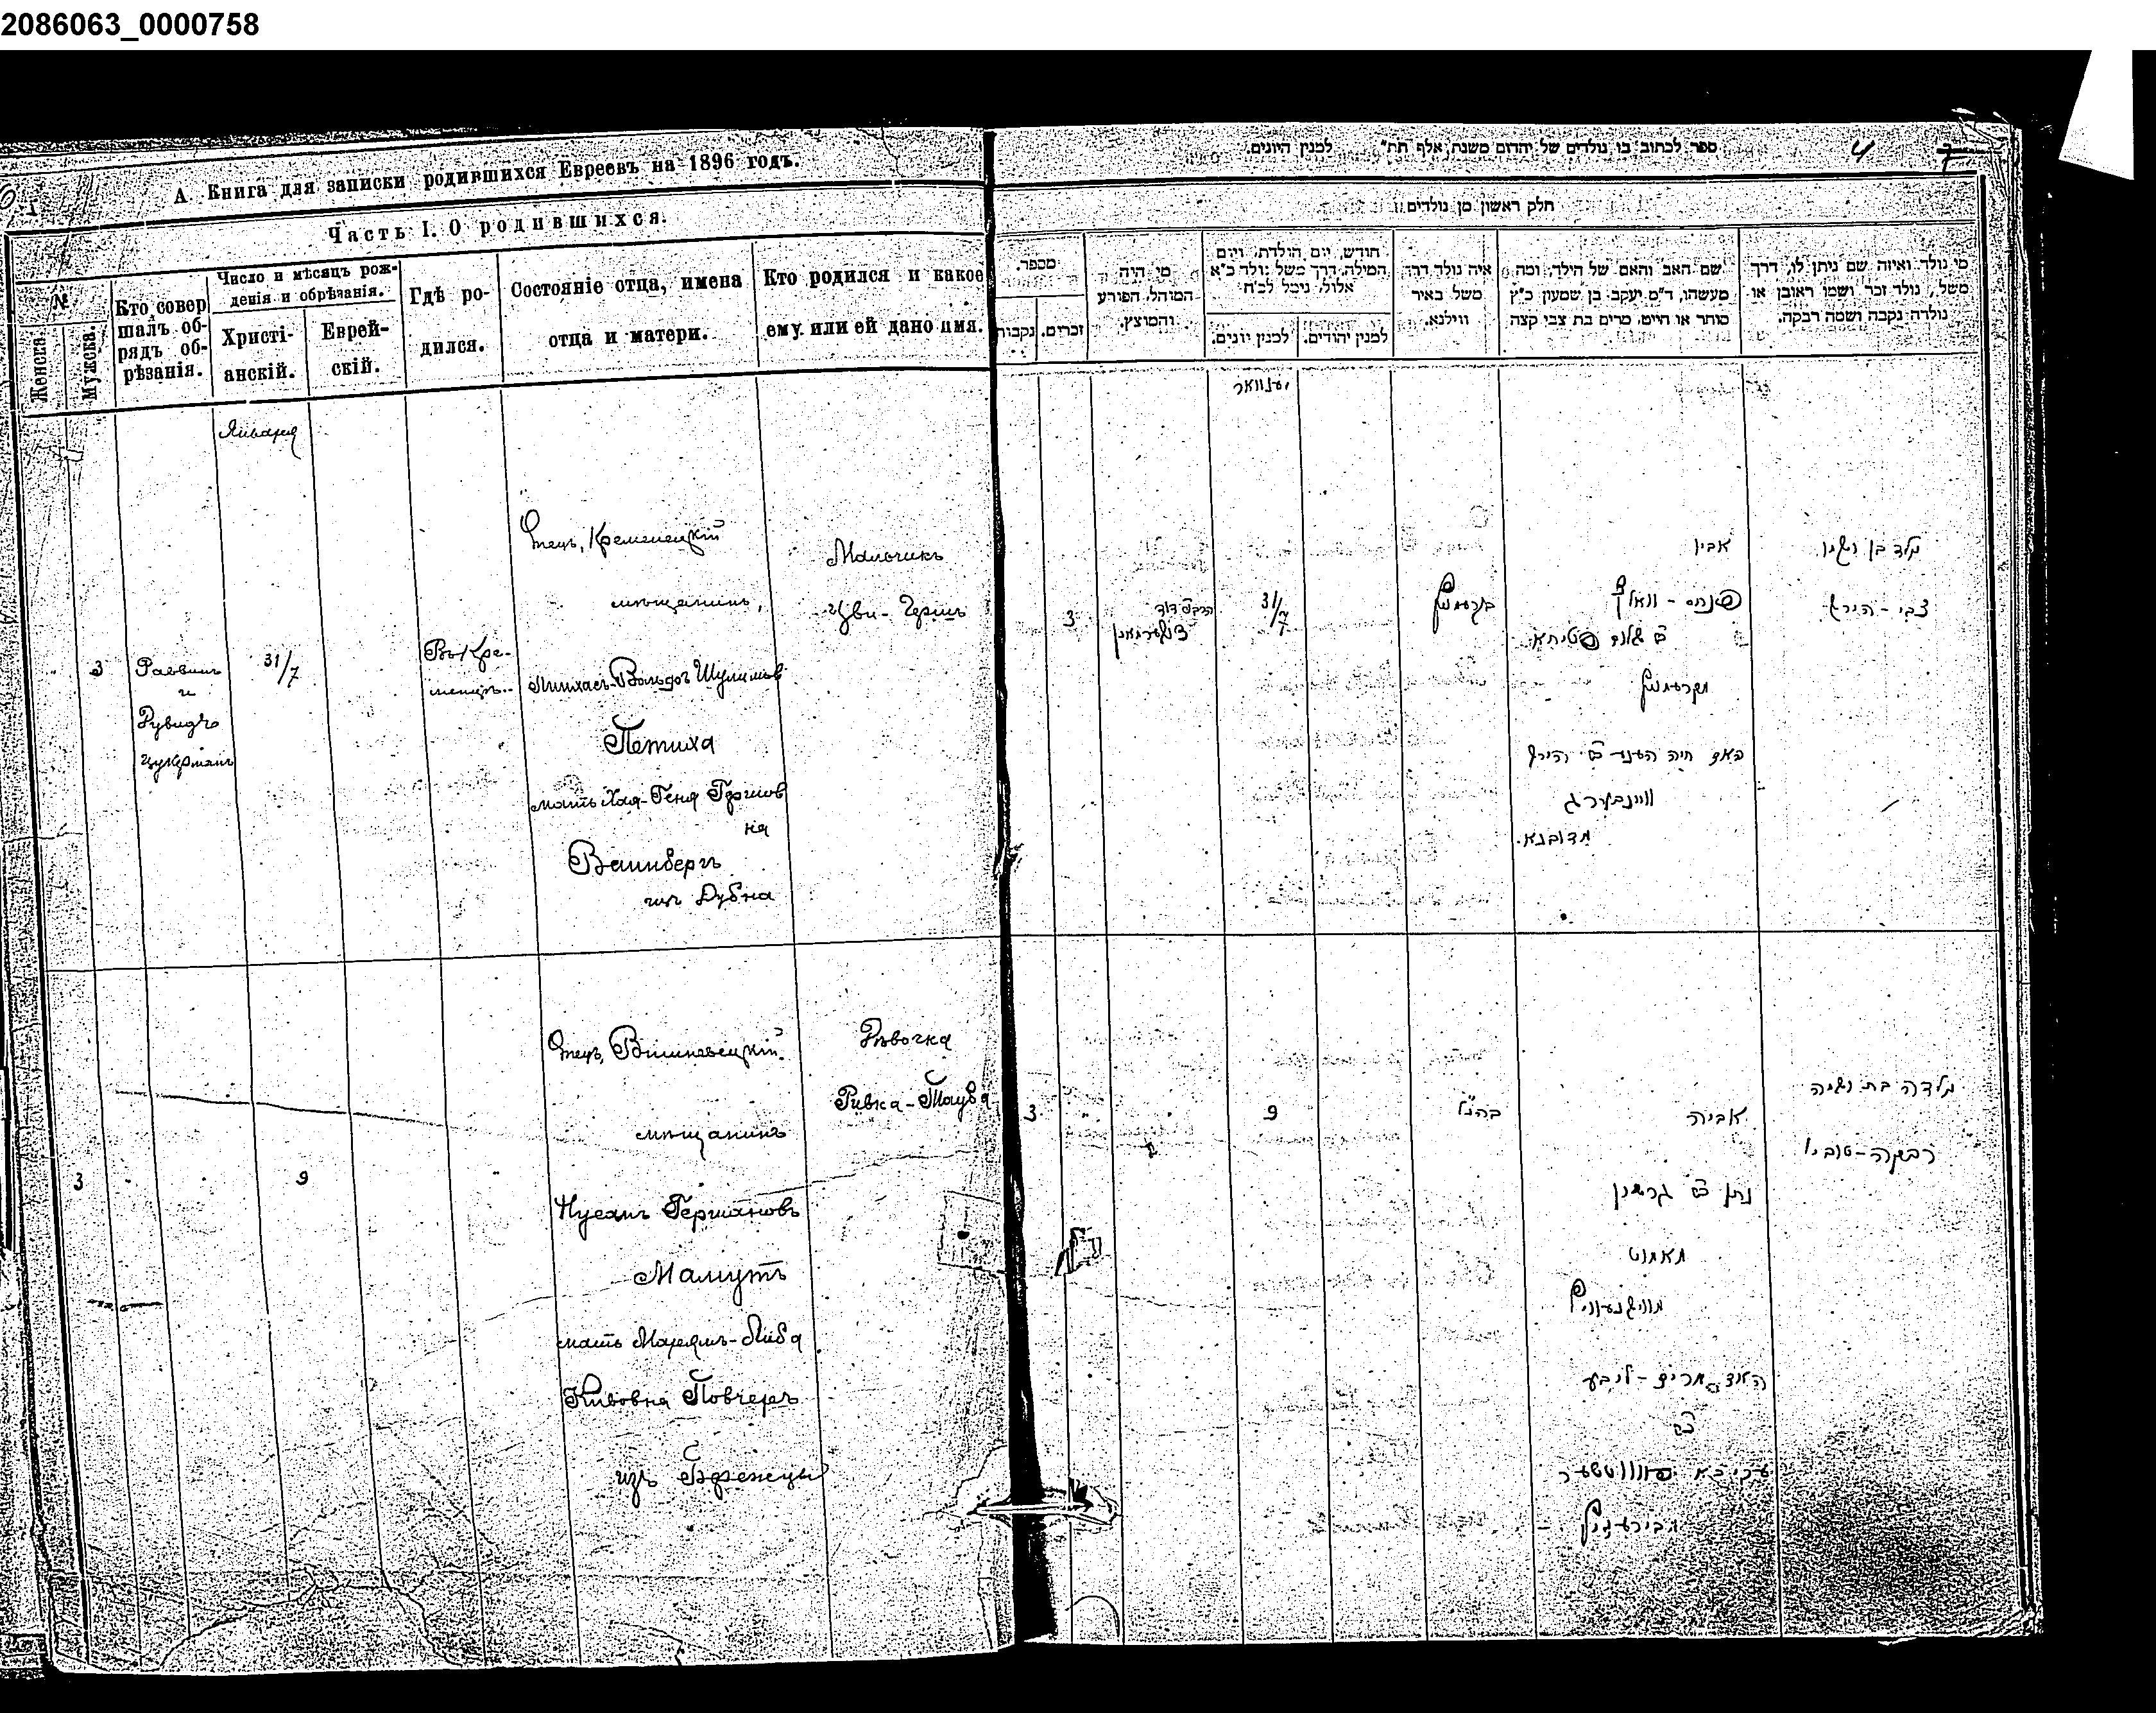 2086063_0000758
А. Книга для записки родившихся Евреевъ на 1896 годъ.
Часть I. О родившихся.
№
Женска.
Мужска.
Кто совер
шалъ об-
рядъ об-
рѣзанія.
Число и мѣсяцъ рож-
денія и обрѣзанія.
Христі-
анскій.
Еврей-
скій.
Гдѣ ро-
дился.
Состояніе отца, имена
отца и матери.
Кто родился и какое
ему или ей дано имя.
Января
3
Раввинъ
и
Цукерманъ
31/7
Въ Кре-
менцѣ
Отецъ, Кременецкій
мѣщанинъ,
Пинхасъ-Вольфъ Шулимов
Петиха
мать Хая-Геня Гершов
на
Вайнбергъ
изъ Дубна
Мальчикъ
Цви-Гершъ
3
9
Отецъ, Вишневецкій
мѣщанинъ
Нусанъ Гершоновъ
Мамутъ
мать Маріямъ-Либа
Кивовна Повчеръ
изъ
Дѣвочка
Ривка-Тауба
ספר לכתוב בו נולדים של יהדום משנת אלף תת״ למנין היונים.
4 7
חלק ראשון מן נולדים
מספר.
נקבות
זכרים.
מי היה
המוהל, הפורע
והמוצץ.
חודש, יום הולדת, ויום
המילה, דרך משל נולד כ״א
אלול, נימל לכ״ח
למנין יונים.
למנין יהודים.
איה נולד דרך
משל באיר
ווילנא.
שם האב והאם של הילד, ומה
מעשהו, ד״מ יעקב בן שמעון כ״ץ
סוחר או חייט, מרים בת צבי קצה
מי נולד ואיזה שם ניתן לו, דרך
משל, נולד זכר ושמו ראובן או
נולדה נקבה ושמה רבקה.
יענוואר
3
צוקערמאן
31/7
אביו
פנחס-וואלף
פטיחא
האם חיה הענע
וויינבערג
מדובנא.
ילד בן ושמו
צבי-הירש
3
9
בהנ״ל
אביה
נתן גרשון
מאמוט
האם מרים-ליבע
עקיבא
ילדה בת ושמה